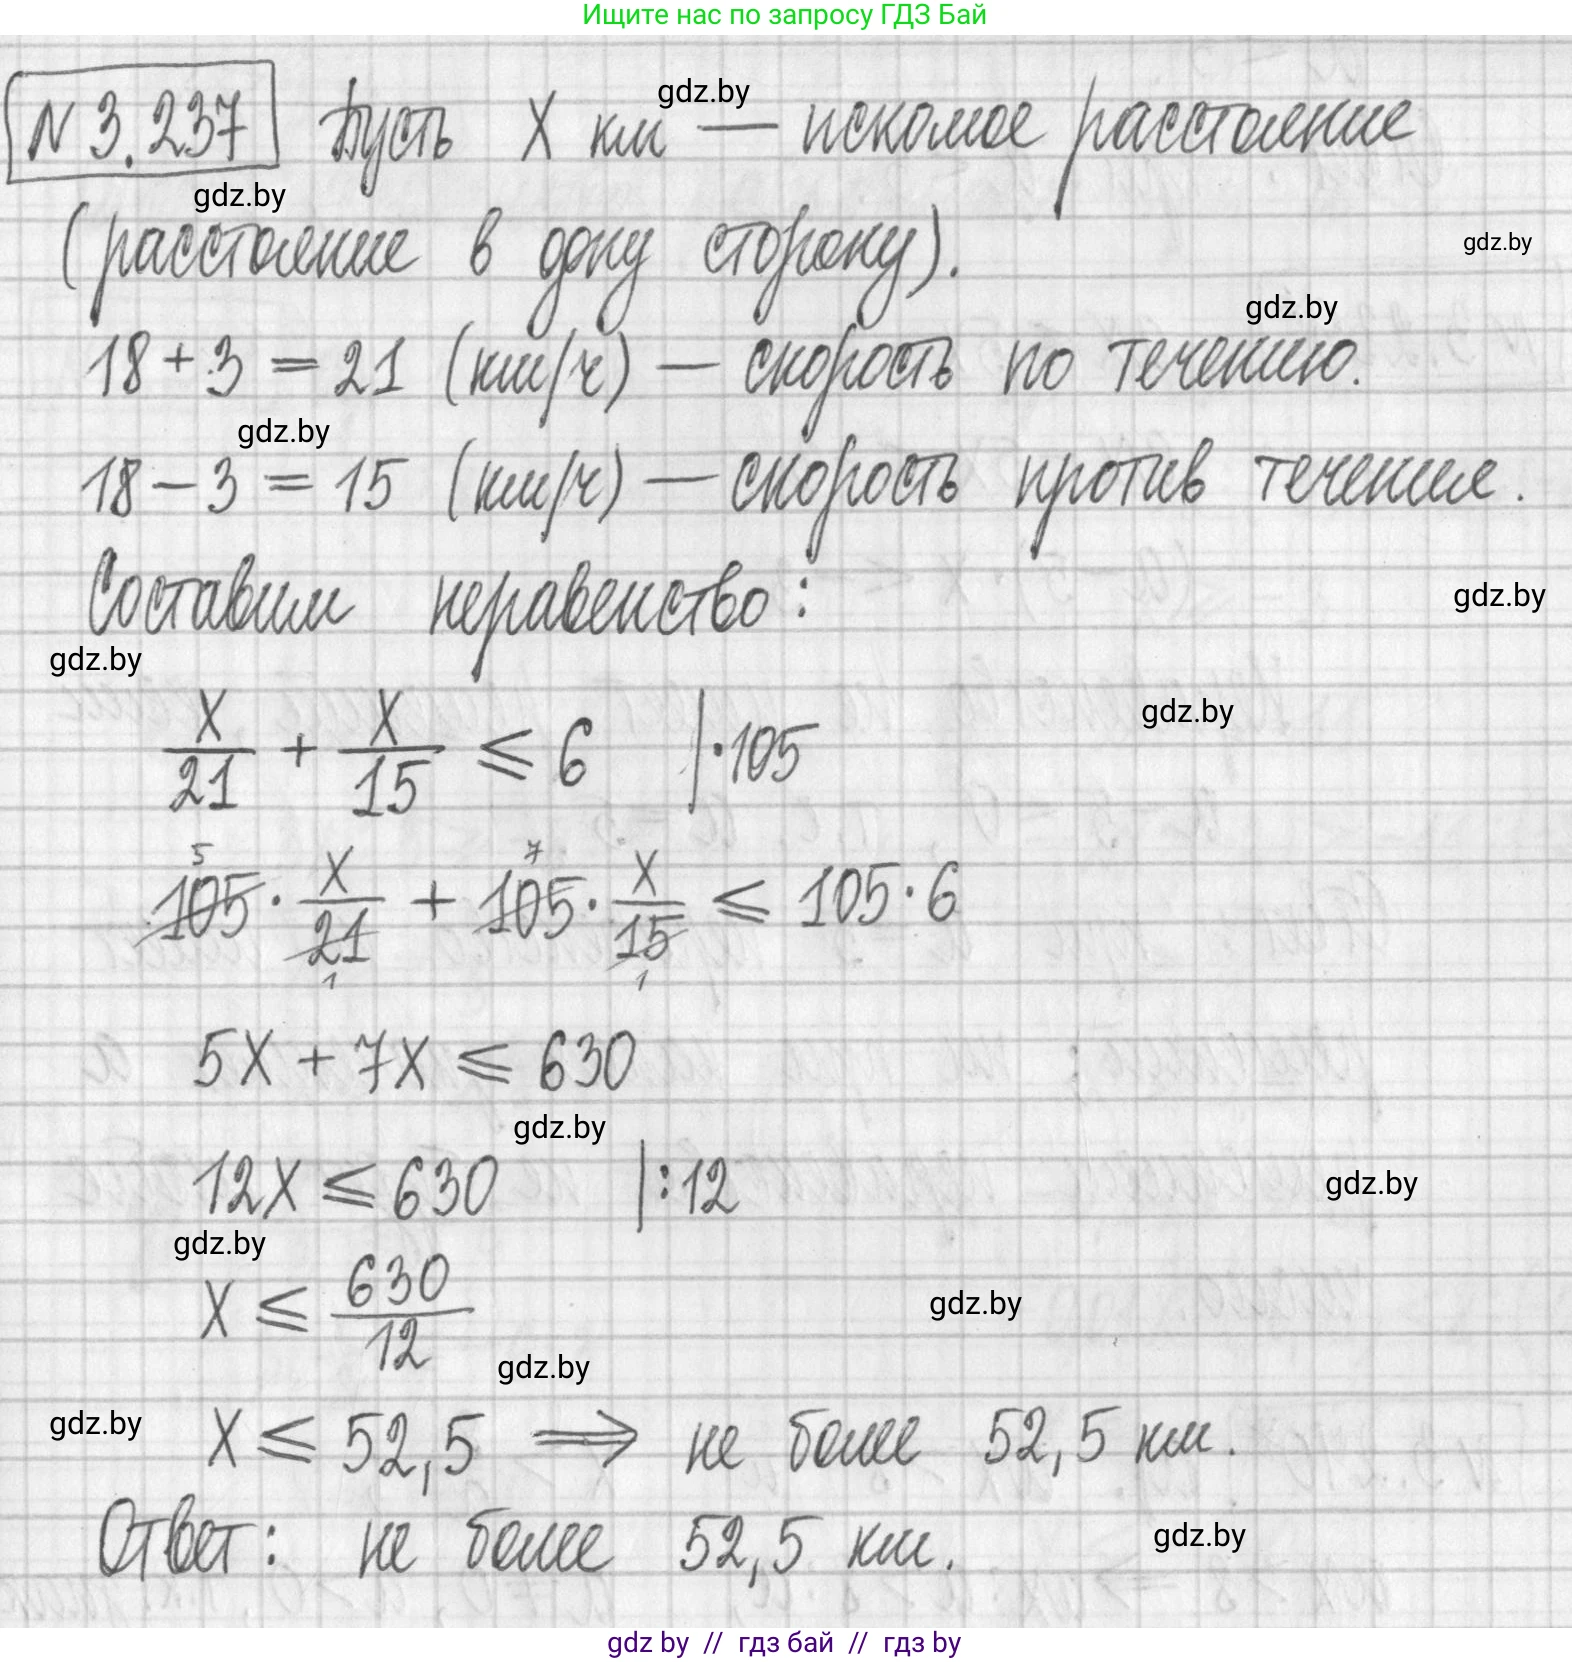 Ищите нас по запросу ГДЗ Бай
N 3.237 Пусть X км — искомое расстояние
gdz.by
gdz.by
(расстояние в одну сторону).
gdz.by
gdz.by
18 + 3 = 21 (км/ч) — скорость по течению.
gdz.by
18 – 3 = 15 (км/ч) — скорость против течения.
Составим неравенство:
gdz.by
gdz.by
gdz.by
X/21 + X/15 ⩽ 6 | · 105
5 7
105 · X/21 + 105 · X/15 ⩽ 105 · 6
1 1
5X + 7X ⩽ 630
gdz.by
12X ⩽ 630 | : 12
gdz.by
gdz.by
X ⩽ 630/12
gdz.by
gdz.by
gdz.by
X ⩽ 52,5 ⟹ не более 52,5 км.
Ответ: не более 52,5 км.
gdz.by
gdz by // гдз бай // гдз by